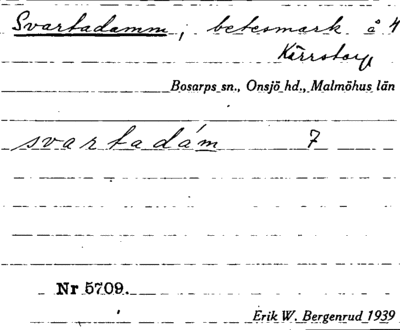 Svartadamm, betesmark å 4
Kärrstorp
Bosarps sn., Onsjö hd., Malmöhus län
svartadám 7
Nr 5709.
Erik W. Bergenrud 1939